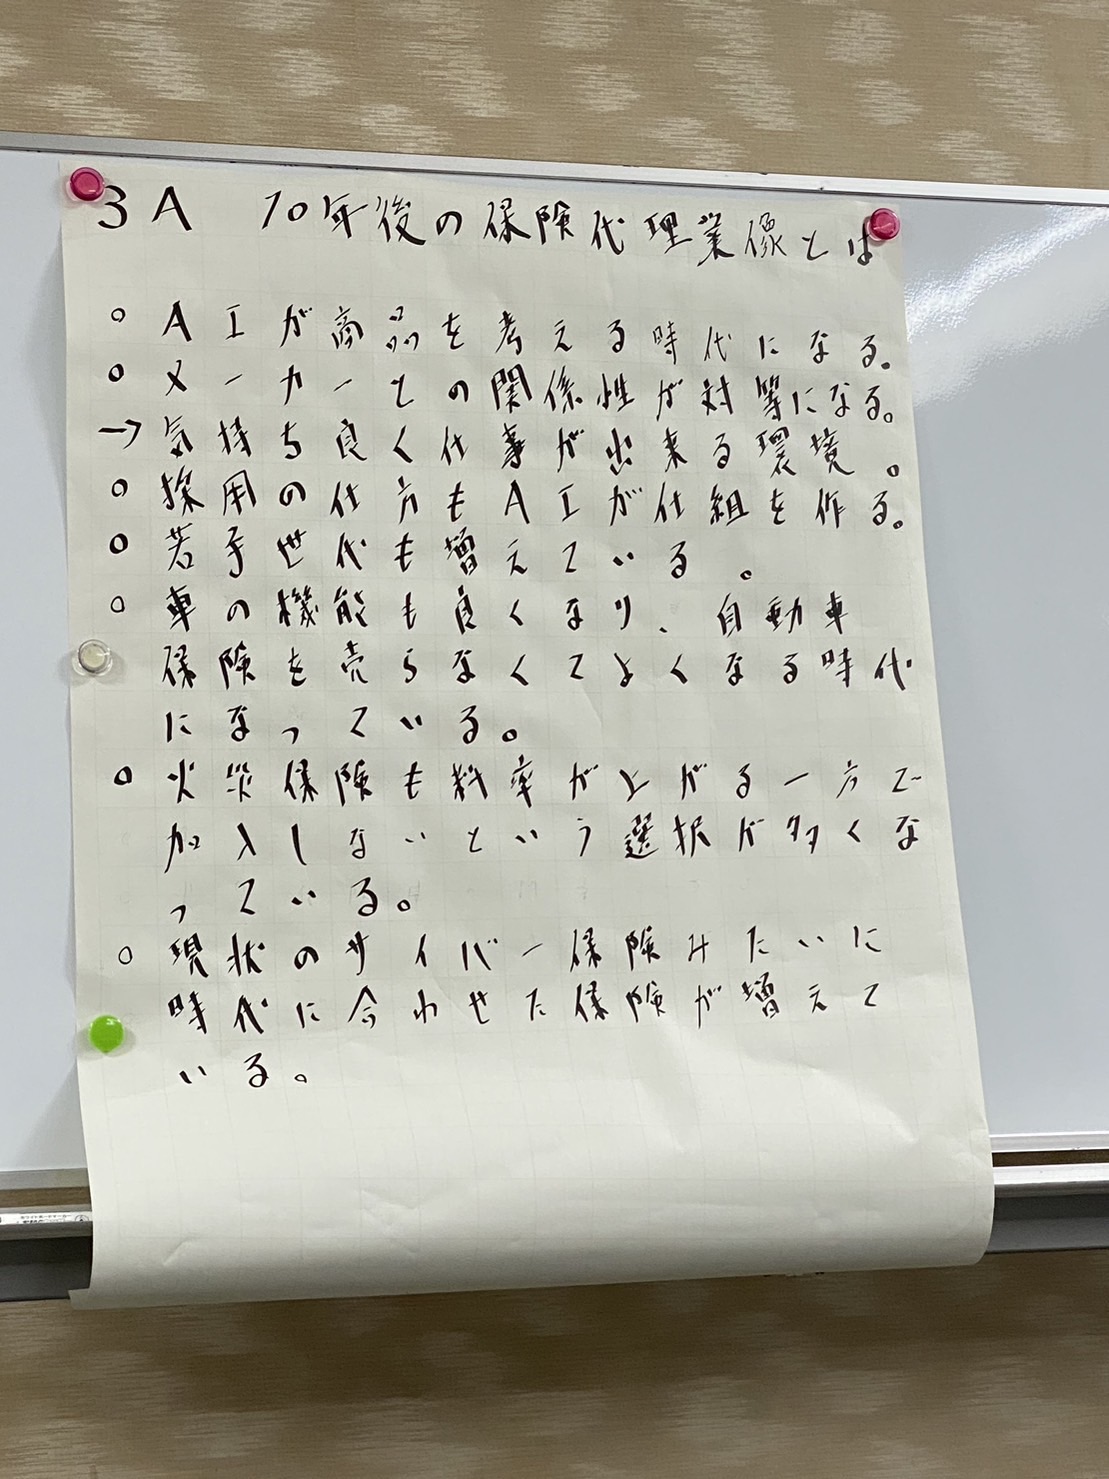 3A 10年後の保険代理業像とは
○ AIが商品を考える時代になる。
○ メーカーとの関係性が対等になる。
→ 気持ち良く仕事が出来る環境。
○ 採用の仕方もAIが仕組を作る。
○ 若手世代も増えている。
○ 車の機能も良くなり、自動車
保険を売らなくてよくなる時代
になっている。
○ 火災保険も料率が上がる一方で
加入しないという選択が多くな
っている。
○ 現状のサイバー保険みたいに
時代に合わせた保険が増えて
いる。